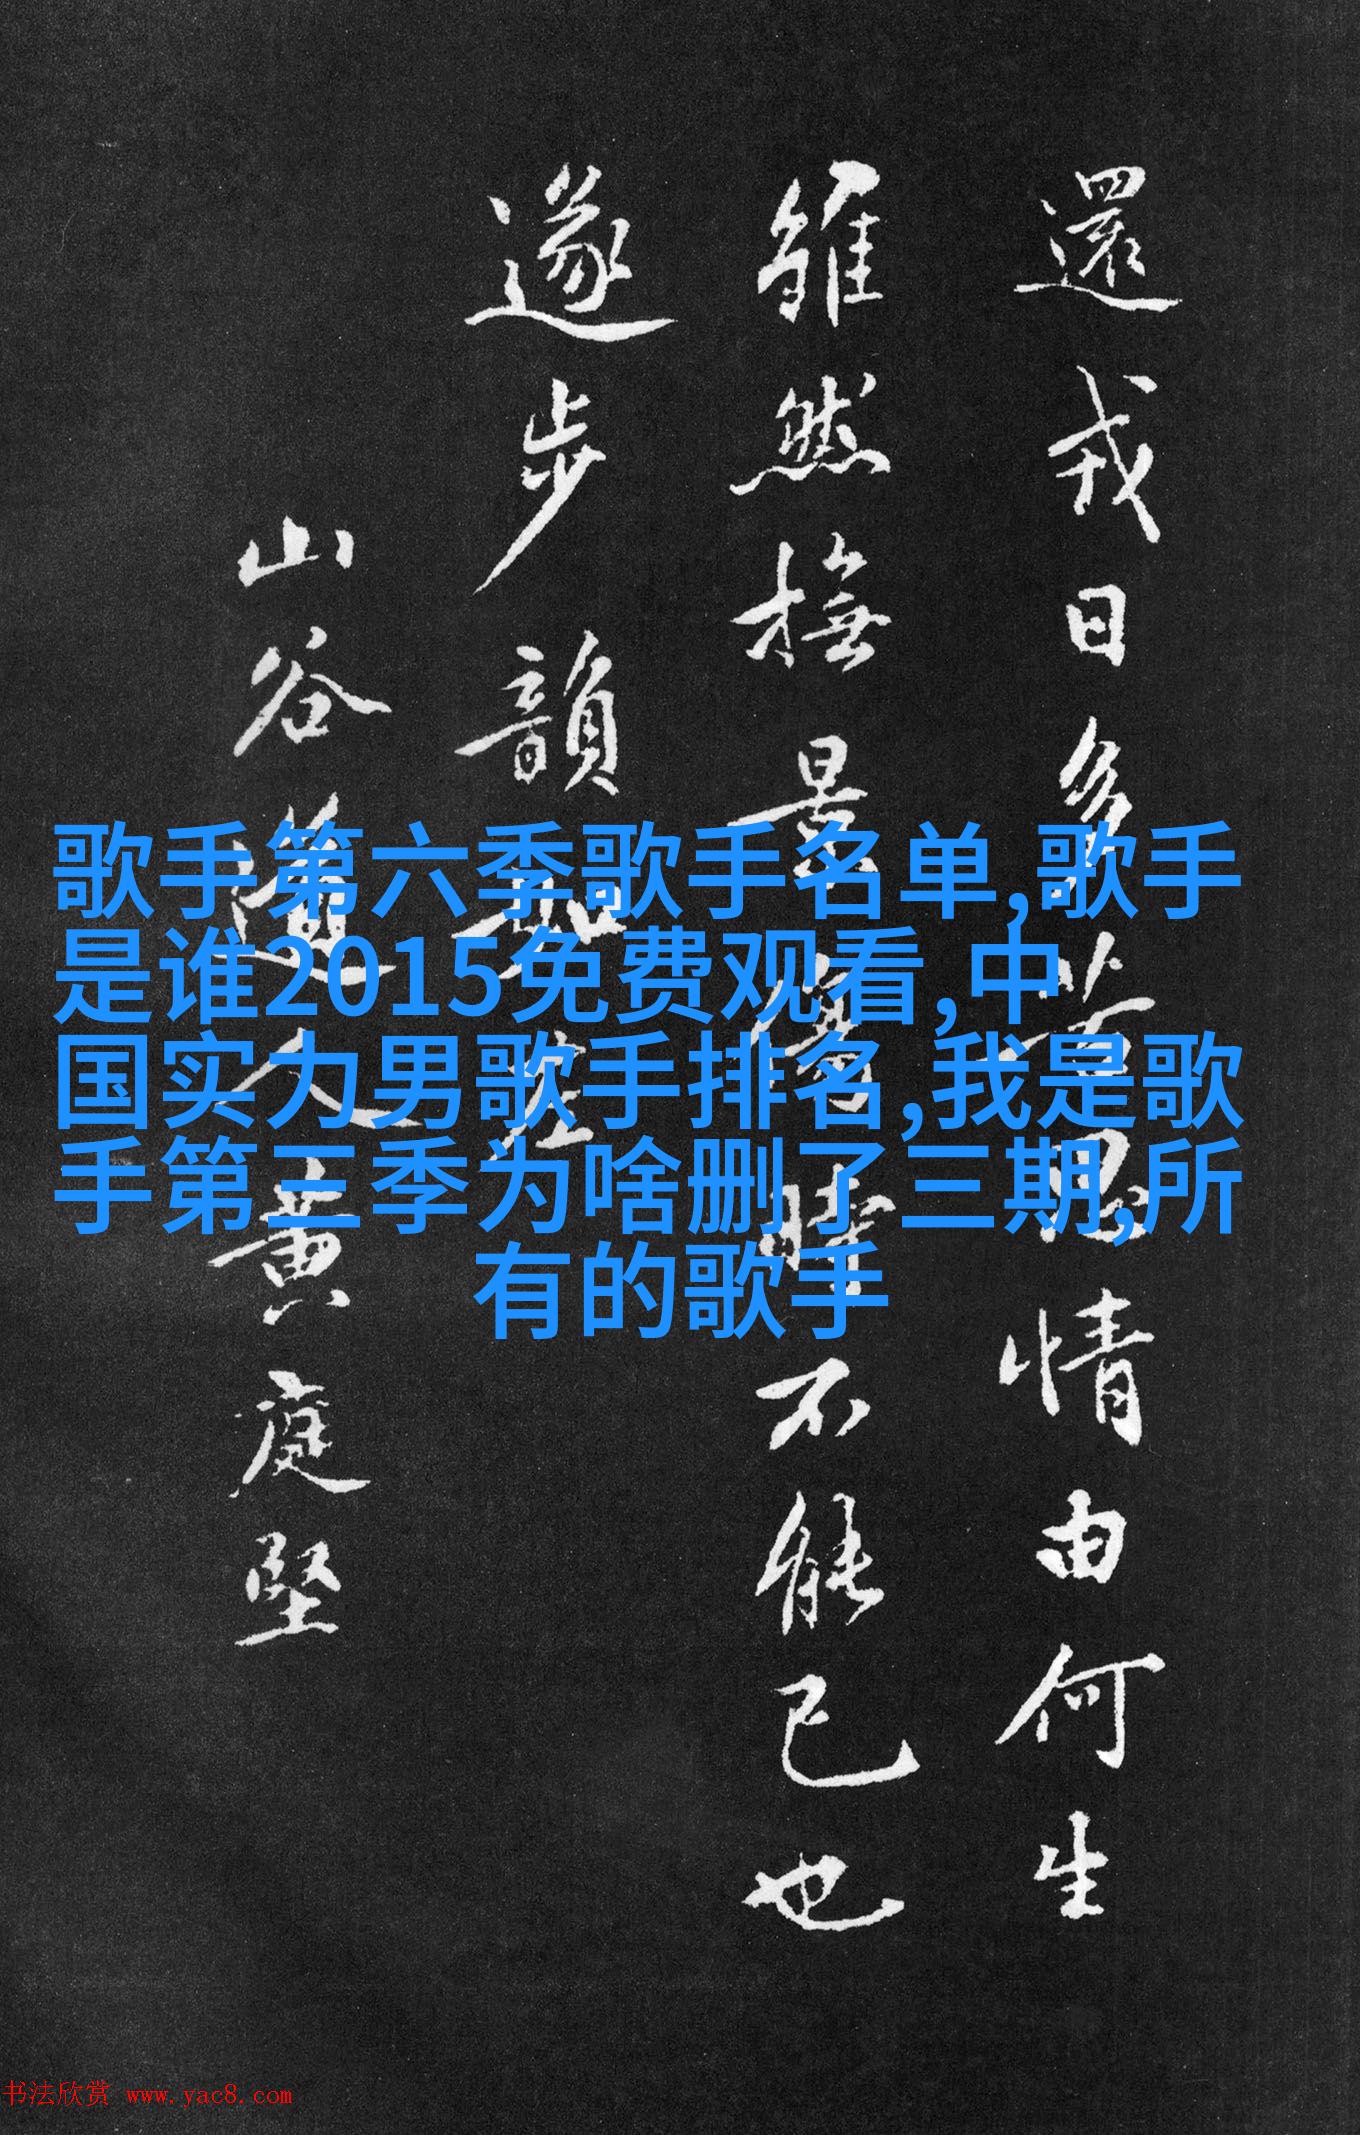 歌手第六季歌手名单,歌手
是谁2015免费观看,中
国实力男歌手排名,我是歌
手第三季为啥删了三期,所
有的歌手
還戎日多思情由何生
雖然撫景傷時不能已也
遂步韻如左
山谷道人黄庭堅
书法欣赏 www.yac8.com